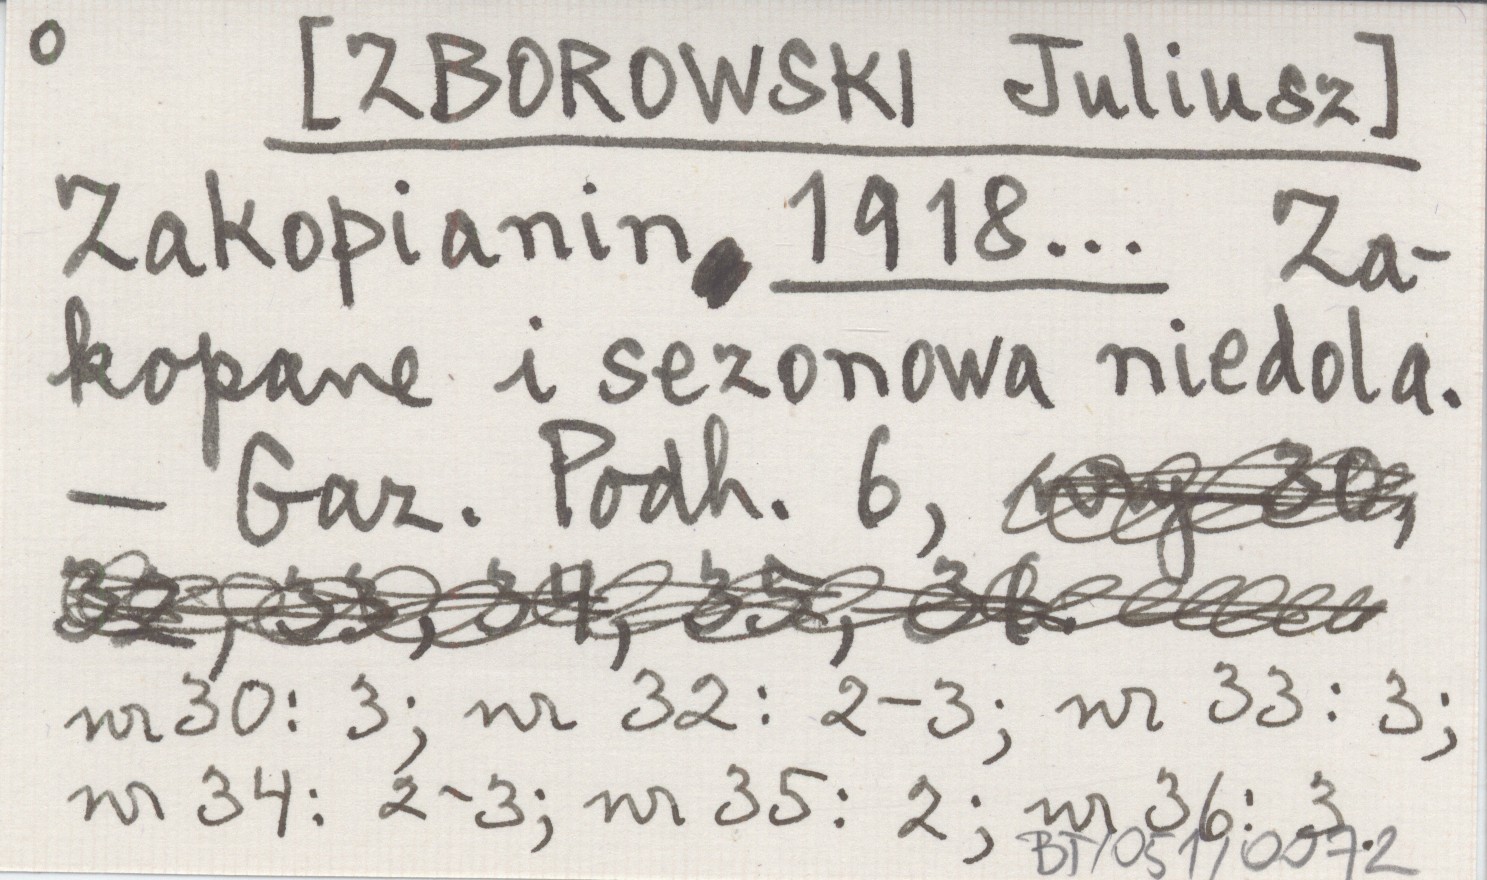 o [ZBOROWSKI Juliusz]
Zakopianin. 1918... Za-
kopane i sezonowa niedola.
— Gaz. Podh. 6, nry 30,
32, 33, 34, 35, 36.
nr 30: 3; nr 32: 2-3; nr 33: 3;
nr 34: 2-3; nr 35: 2; nr 36: 3.
BT/051/0072